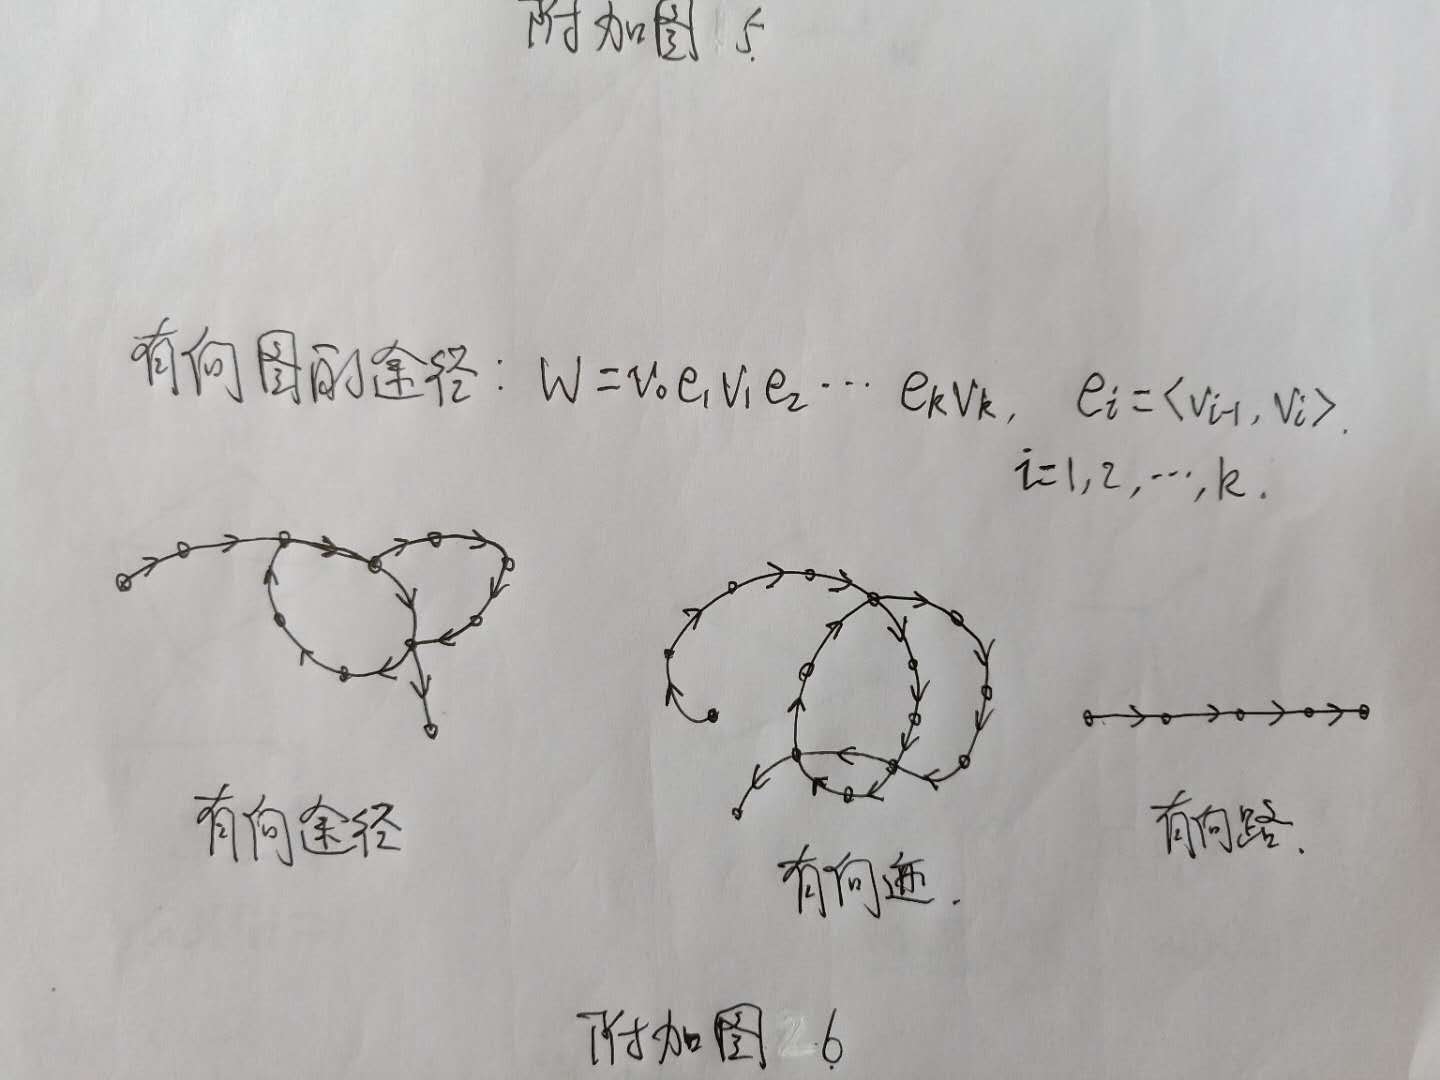 附加图 5
有向图的途径: W=v₀e₁v₁e₂⋯eₖvₖ, eᵢ=<vᵢ₋₁, vᵢ>.
i=1,2,⋯,k.
有向途径
有向迹.
有向路.
附加图 6